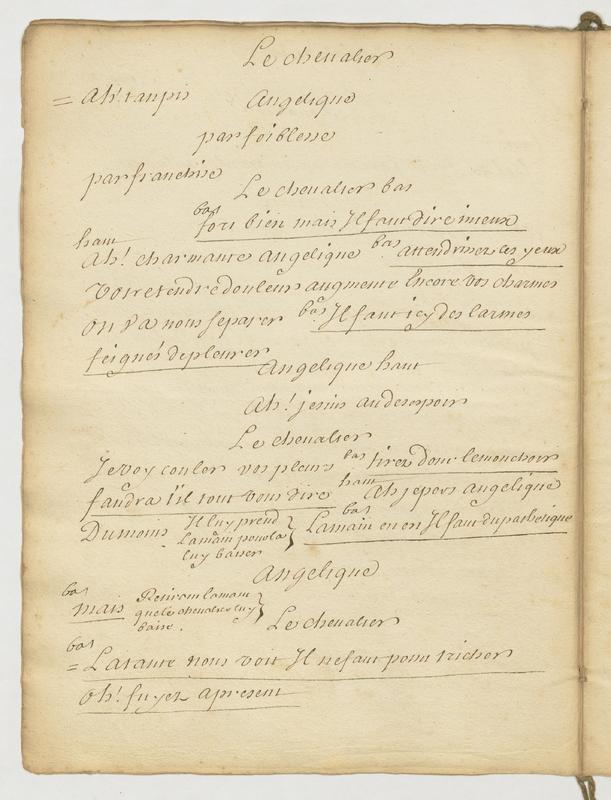 Le chevalier
= Ah! tanpis
Angelique
par foiblesse
par franchise
Le chevalier bas
bas
fort bien mais Il faut dire mieux
haut
Ah! charmante angelique bas attendrisez les yeux
Votre tendre douleur augmente Encore vos charmes
On va nous separer bas Il faut icy des larmes
feignés de pleurer
Angelique haut
Ah! jesuis au desespoir
Le chevalier
Je voy couler vos pleurs bas tirez donc le mouchoir
faudra t'il tout vous dire haut Ah j'epers angelique
Du moins Il luy prend la main pour la luy baiser } bas La main en en Il faut du pathetique
Angelique
bas
mais Retirant la main que le chevalier luy baise. }
Le chevalier
bas
= La tante nous voit Il ne faut point tricher
Oh! fuyez apresent